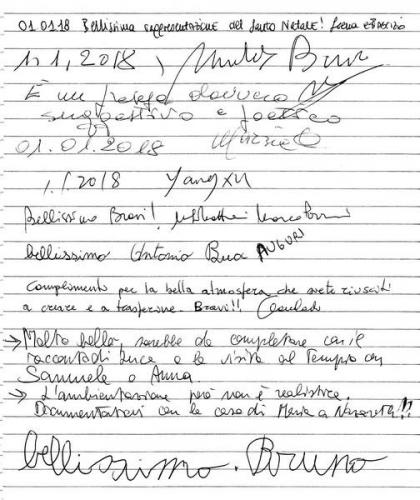 01.01.18 Bellissima rappresentazione del Santo Natale!
1.1.2018
È un presepe davvero
suggestivo e poetico
01.01.2018
1.1.2018 Yangxu
Bellissimo Bravi!
bellissimo Antonio Bua AUGURI
Complimenti per la bella atmosfera che siete riusciti
a creare e a trasferire. Bravi!!
→ Molto bello, sarebbe da completare con il
racconto di Luca e la visita al Tempio con
Samuele e Anna.
→ L'ambientazione però non è realistica.
Documentatevi con la casa di Maria a Nazareth!!
bellissimo. Bruno